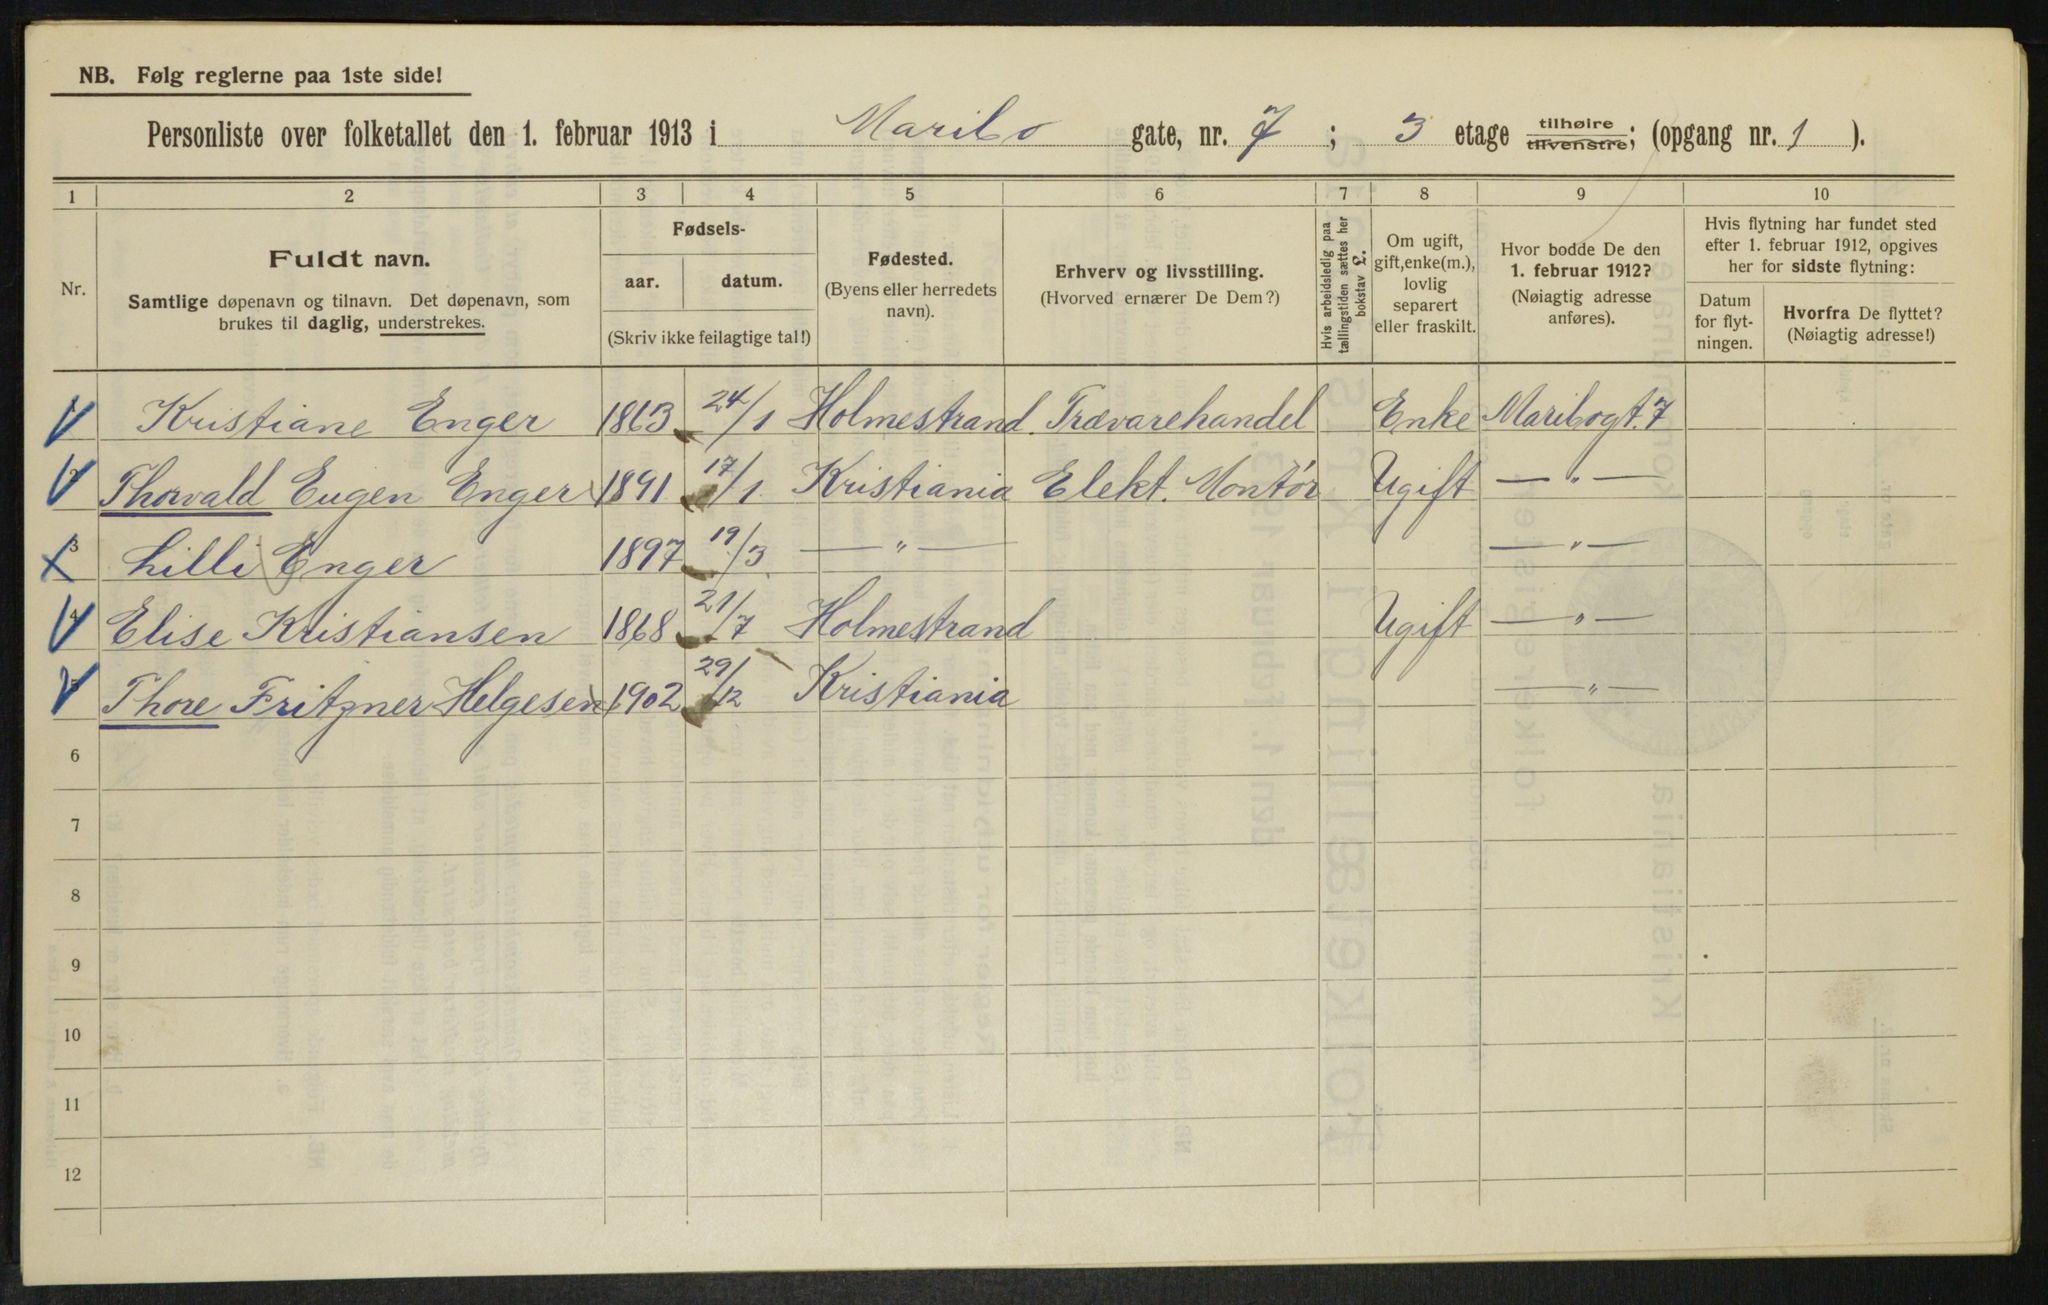 NB. Følg reglerne paa 1ste side!
Personliste over folketallet den 1. februar 1913 i Maribo gate, nr. 7; 3 etage tilhøire tilvenstre; (opgang nr. 1).
1 2 3 4 5 6 7 8 9 10
Nr.
Fuldt navn.
Samtlige døpenavn og tilnavn. Det døpenavn, som
brukes til daglig, understrekes.
Fødsels-
aar. datum.
(Skriv ikke feilagtige tal!)
Fødested.
(Byens eller herredets
navn).
Erhverv og livsstilling.
(Hvorved ernærer De Dem?)
Hvis arbeidsledig paa
tællingstiden sættes her
bokstav L.
Om ugift,
gift, enke(m.),
lovlig
separert
eller fraskilt.
Hvor bodde De den
1. februar 1912?
(Nøiagtig adresse
anføres).
Hvis flytning har fundet sted
efter 1. februar 1912, opgives
her for sidste flytning:
Datum
for flyt-
ningen.
Hvorfra De flyttet?
(Nøiagtig adresse!)
1 Kristiane Enger 1863 24/1 Holmestrand. Trævarehandel Enke Maribogt. 7
2 Thorvald Eugen Enger 1891 17/1 Kristiania Elekt. Montør Ugift — " —
3 Lilli Enger 1897 19/3 — " — — " —
4 Elise Kristiansen 1868 21/7 Holmestrand Ugift — " —
5 Thore Fritzner Helgesen 1902 29/12 Kristiania — " —
6
7
8
9
10
11
12